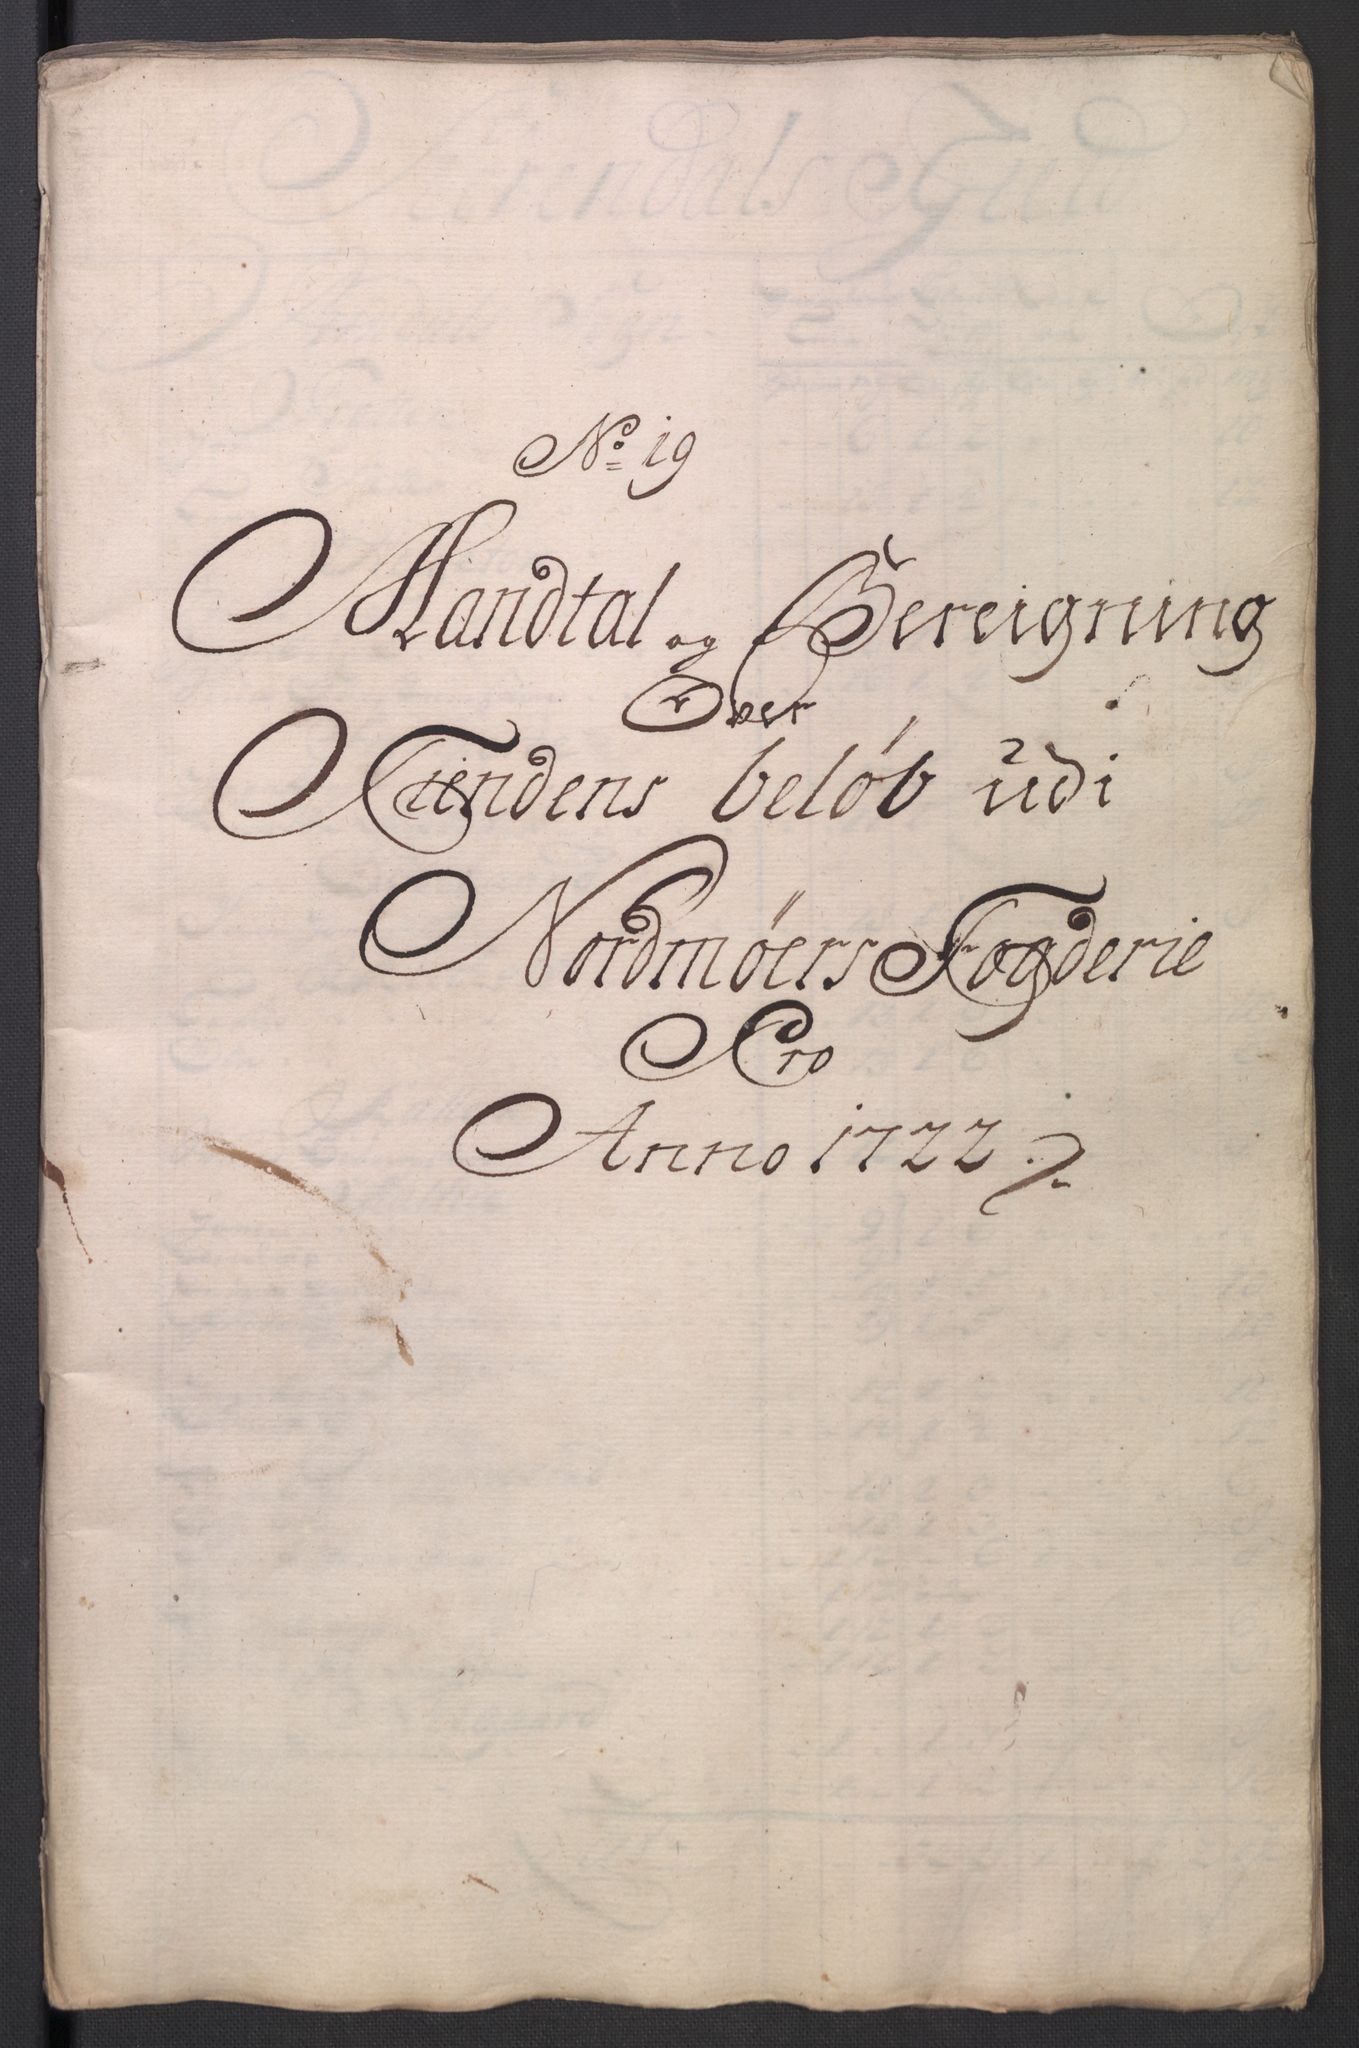 No 19
Mandtal og Bereigning
Over
Tiendens beløb udi
Nordmöers Fogderie
Pro
Anno 1722